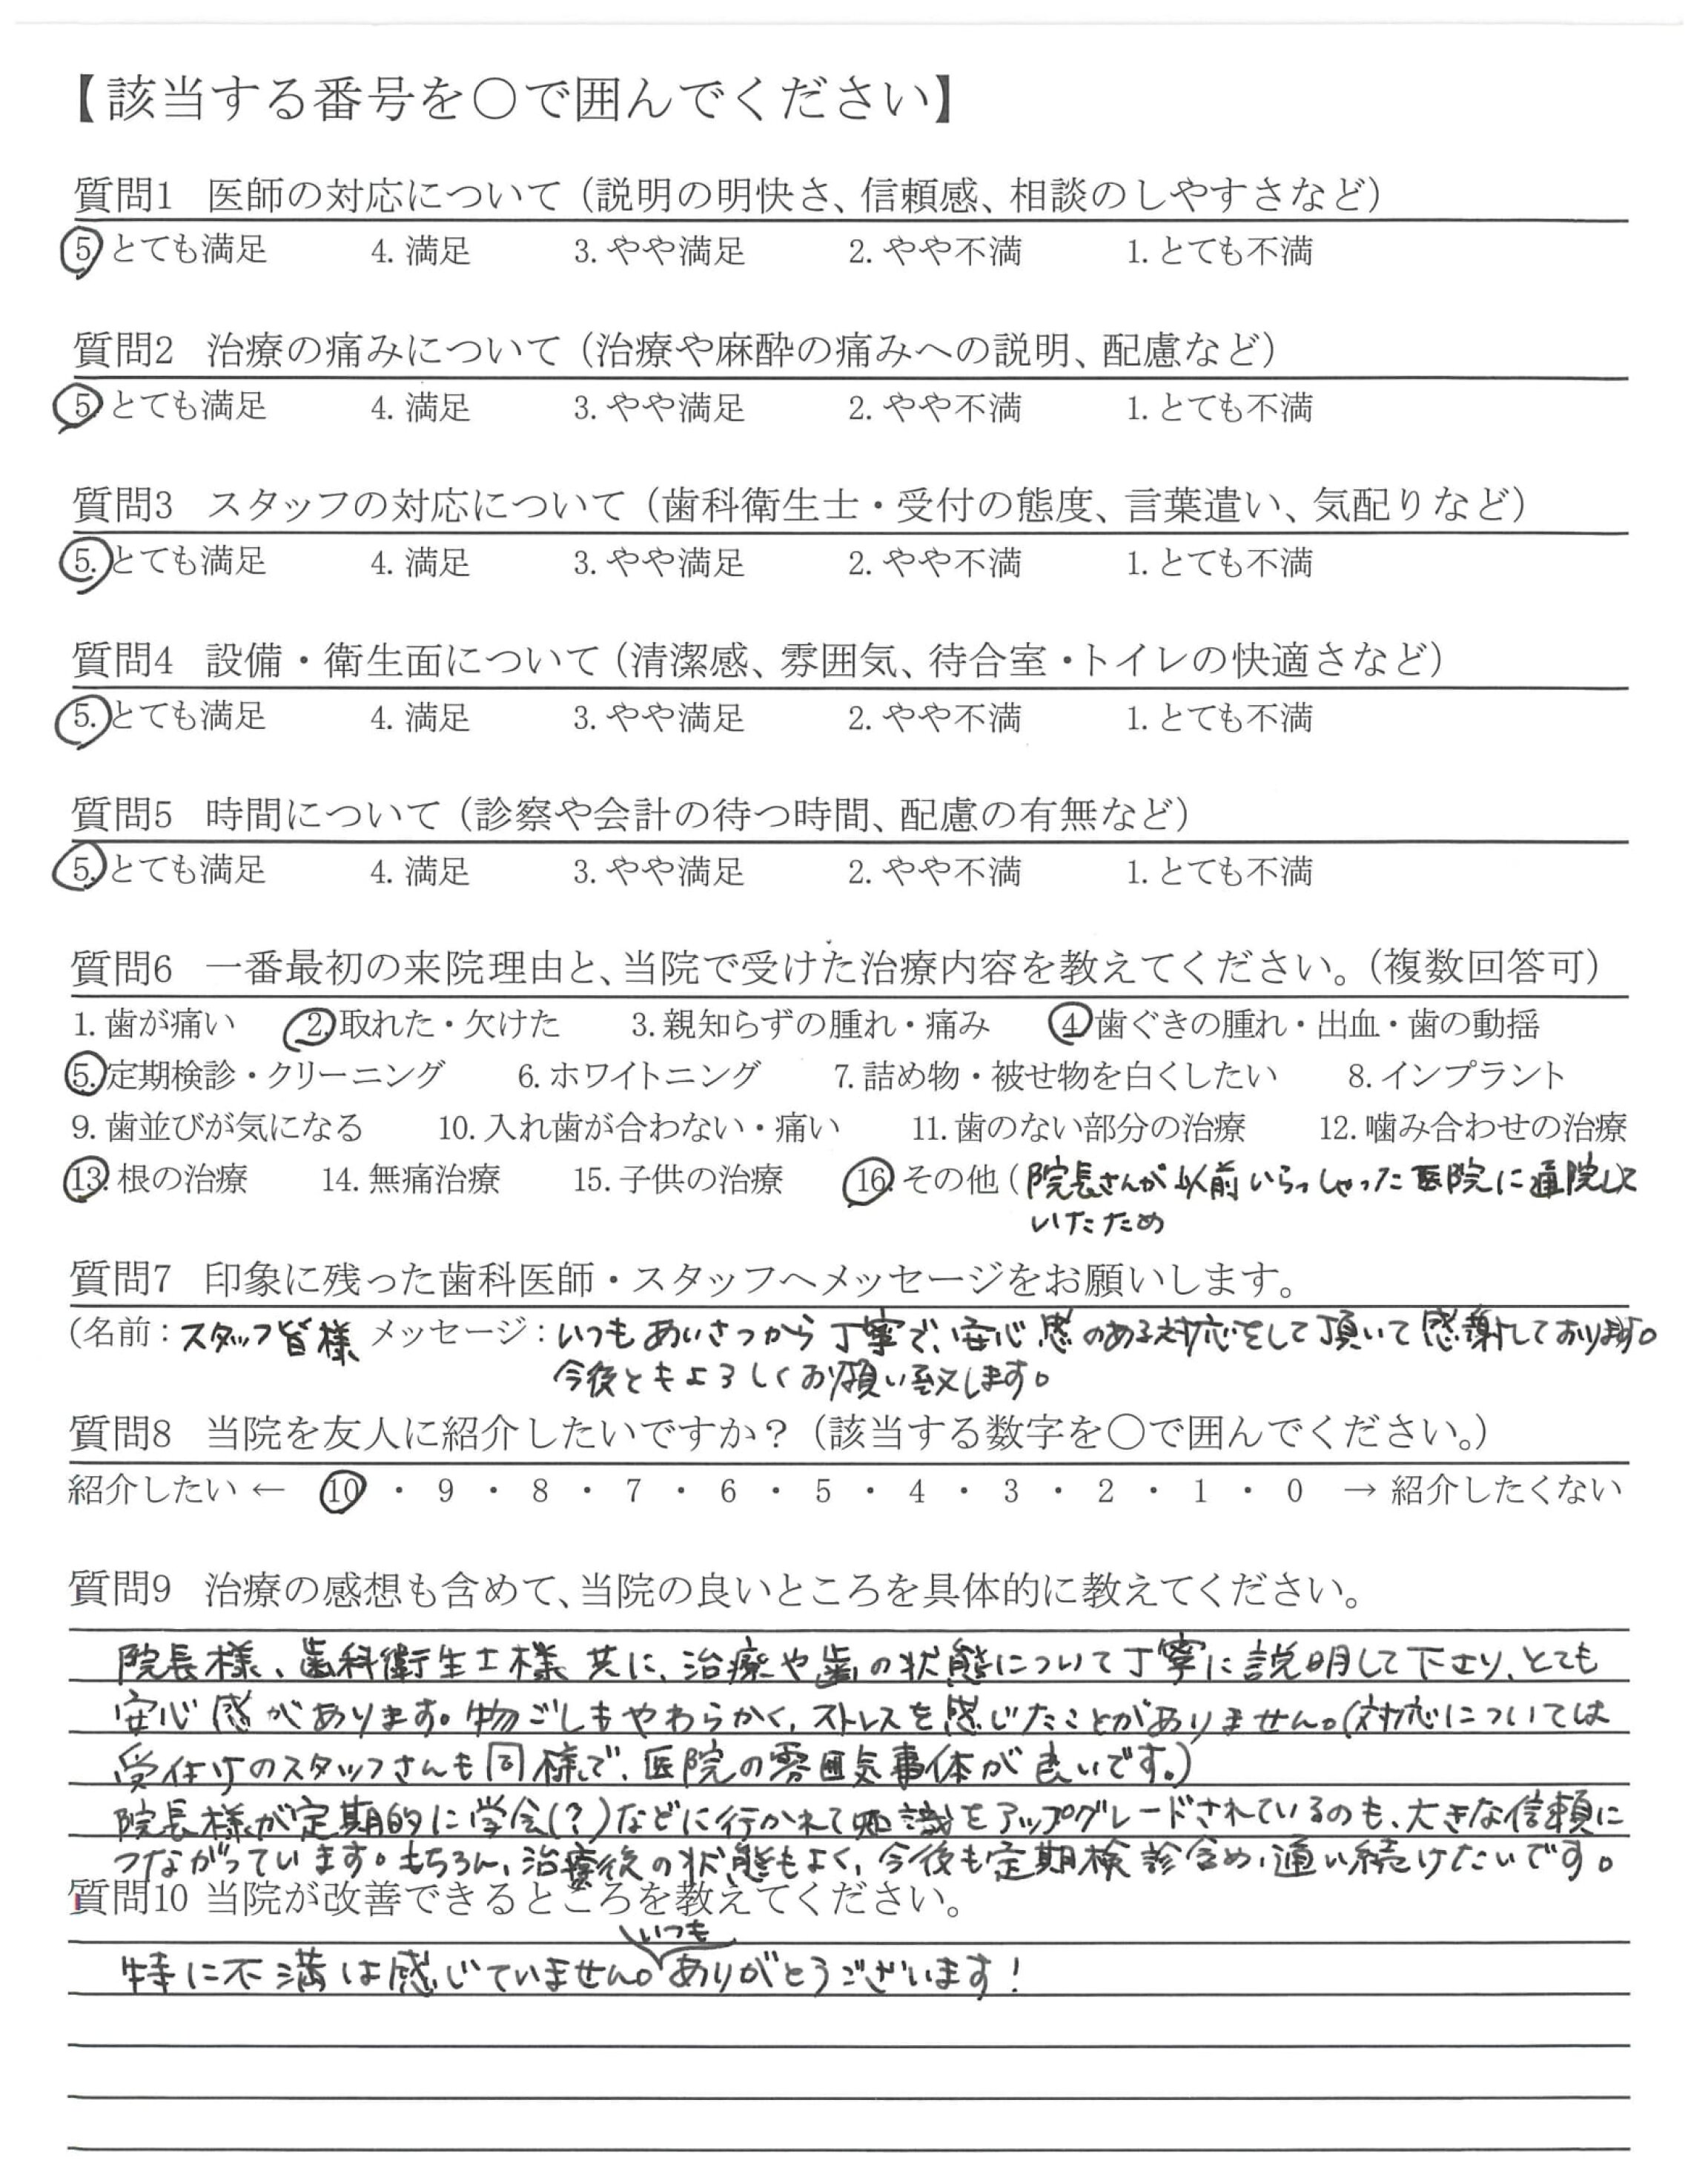 【該当する番号を〇で囲んでください】
質問1 医師の対応について（説明の明快さ、信頼感、相談のしやすさなど）
5. とても満足 4. 満足 3. やや満足 2. やや不満 1. とても不満
質問2 治療の痛みについて（治療や麻酔の痛みへの説明、配慮など）
5. とても満足 4. 満足 3. やや満足 2. やや不満 1. とても不満
質問3 スタッフの対応について（歯科衛生士・受付の態度、言葉遣い、気配りなど）
5. とても満足 4. 満足 3. やや満足 2. やや不満 1. とても不満
質問4 設備・衛生面について（清潔感、雰囲気、待合室・トイレの快適さなど）
5. とても満足 4. 満足 3. やや満足 2. やや不満 1. とても不満
質問5 時間について（診察や会計の待つ時間、配慮の有無など）
5. とても満足 4. 満足 3. やや満足 2. やや不満 1. とても不満
質問6 一番最初の来院理由と、当院で受けた治療内容を教えてください。（複数回答可）
1. 歯が痛い 2. 取れた・欠けた 3. 親知らずの腫れ・痛み 4. 歯ぐきの腫れ・出血・歯の動揺
5. 定期検診・クリーニング 6. ホワイトニング 7. 詰め物・被せ物を白くしたい 8. インプラント
9. 歯並びが気になる 10. 入れ歯が合わない・痛い 11. 歯のない部分の治療 12. 噛み合わせの治療
13. 根の治療 14. 無痛治療 15. 子供の治療 16. その他（院長さんが以前いらっしゃった医院に通院して
いたため
質問7 印象に残った歯科医師・スタッフへメッセージをお願いします。
（名前：スタッフ皆様 メッセージ：いつもあいさつから丁寧で、安心感のある対応をして頂いて感謝しております。
今後ともよろしくお願い致します。
質問8 当院を友人に紹介したいですか？（該当する数字を〇で囲んでください。）
紹介したい ← 10 ・ 9 ・ 8 ・ 7 ・ 6 ・ 5 ・ 4 ・ 3 ・ 2 ・ 1 ・ 0 → 紹介したくない
質問9 治療の感想も含めて、当院の良いところを具体的に教えてください。
院長様、歯科衛生士様 共に、治療や歯の状態について丁寧に説明して下さり、とても
安心感があります。物ごしもやわらかく、ストレスを感じたことがありません。（対応については
受付けのスタッフさんも同様で、医院の雰囲気事体が良いです。）
院長様が定期的に学会（？）などに行かれて知識をアップグレードされているのも、大きな信頼に
つながっています。もちろん、治療後の状態もよく、今後も定期検診含め、通い続けたいです。
質問10 当院が改善できるところを教えてください。
特に不満は感じていません。いつもありがとうございます！